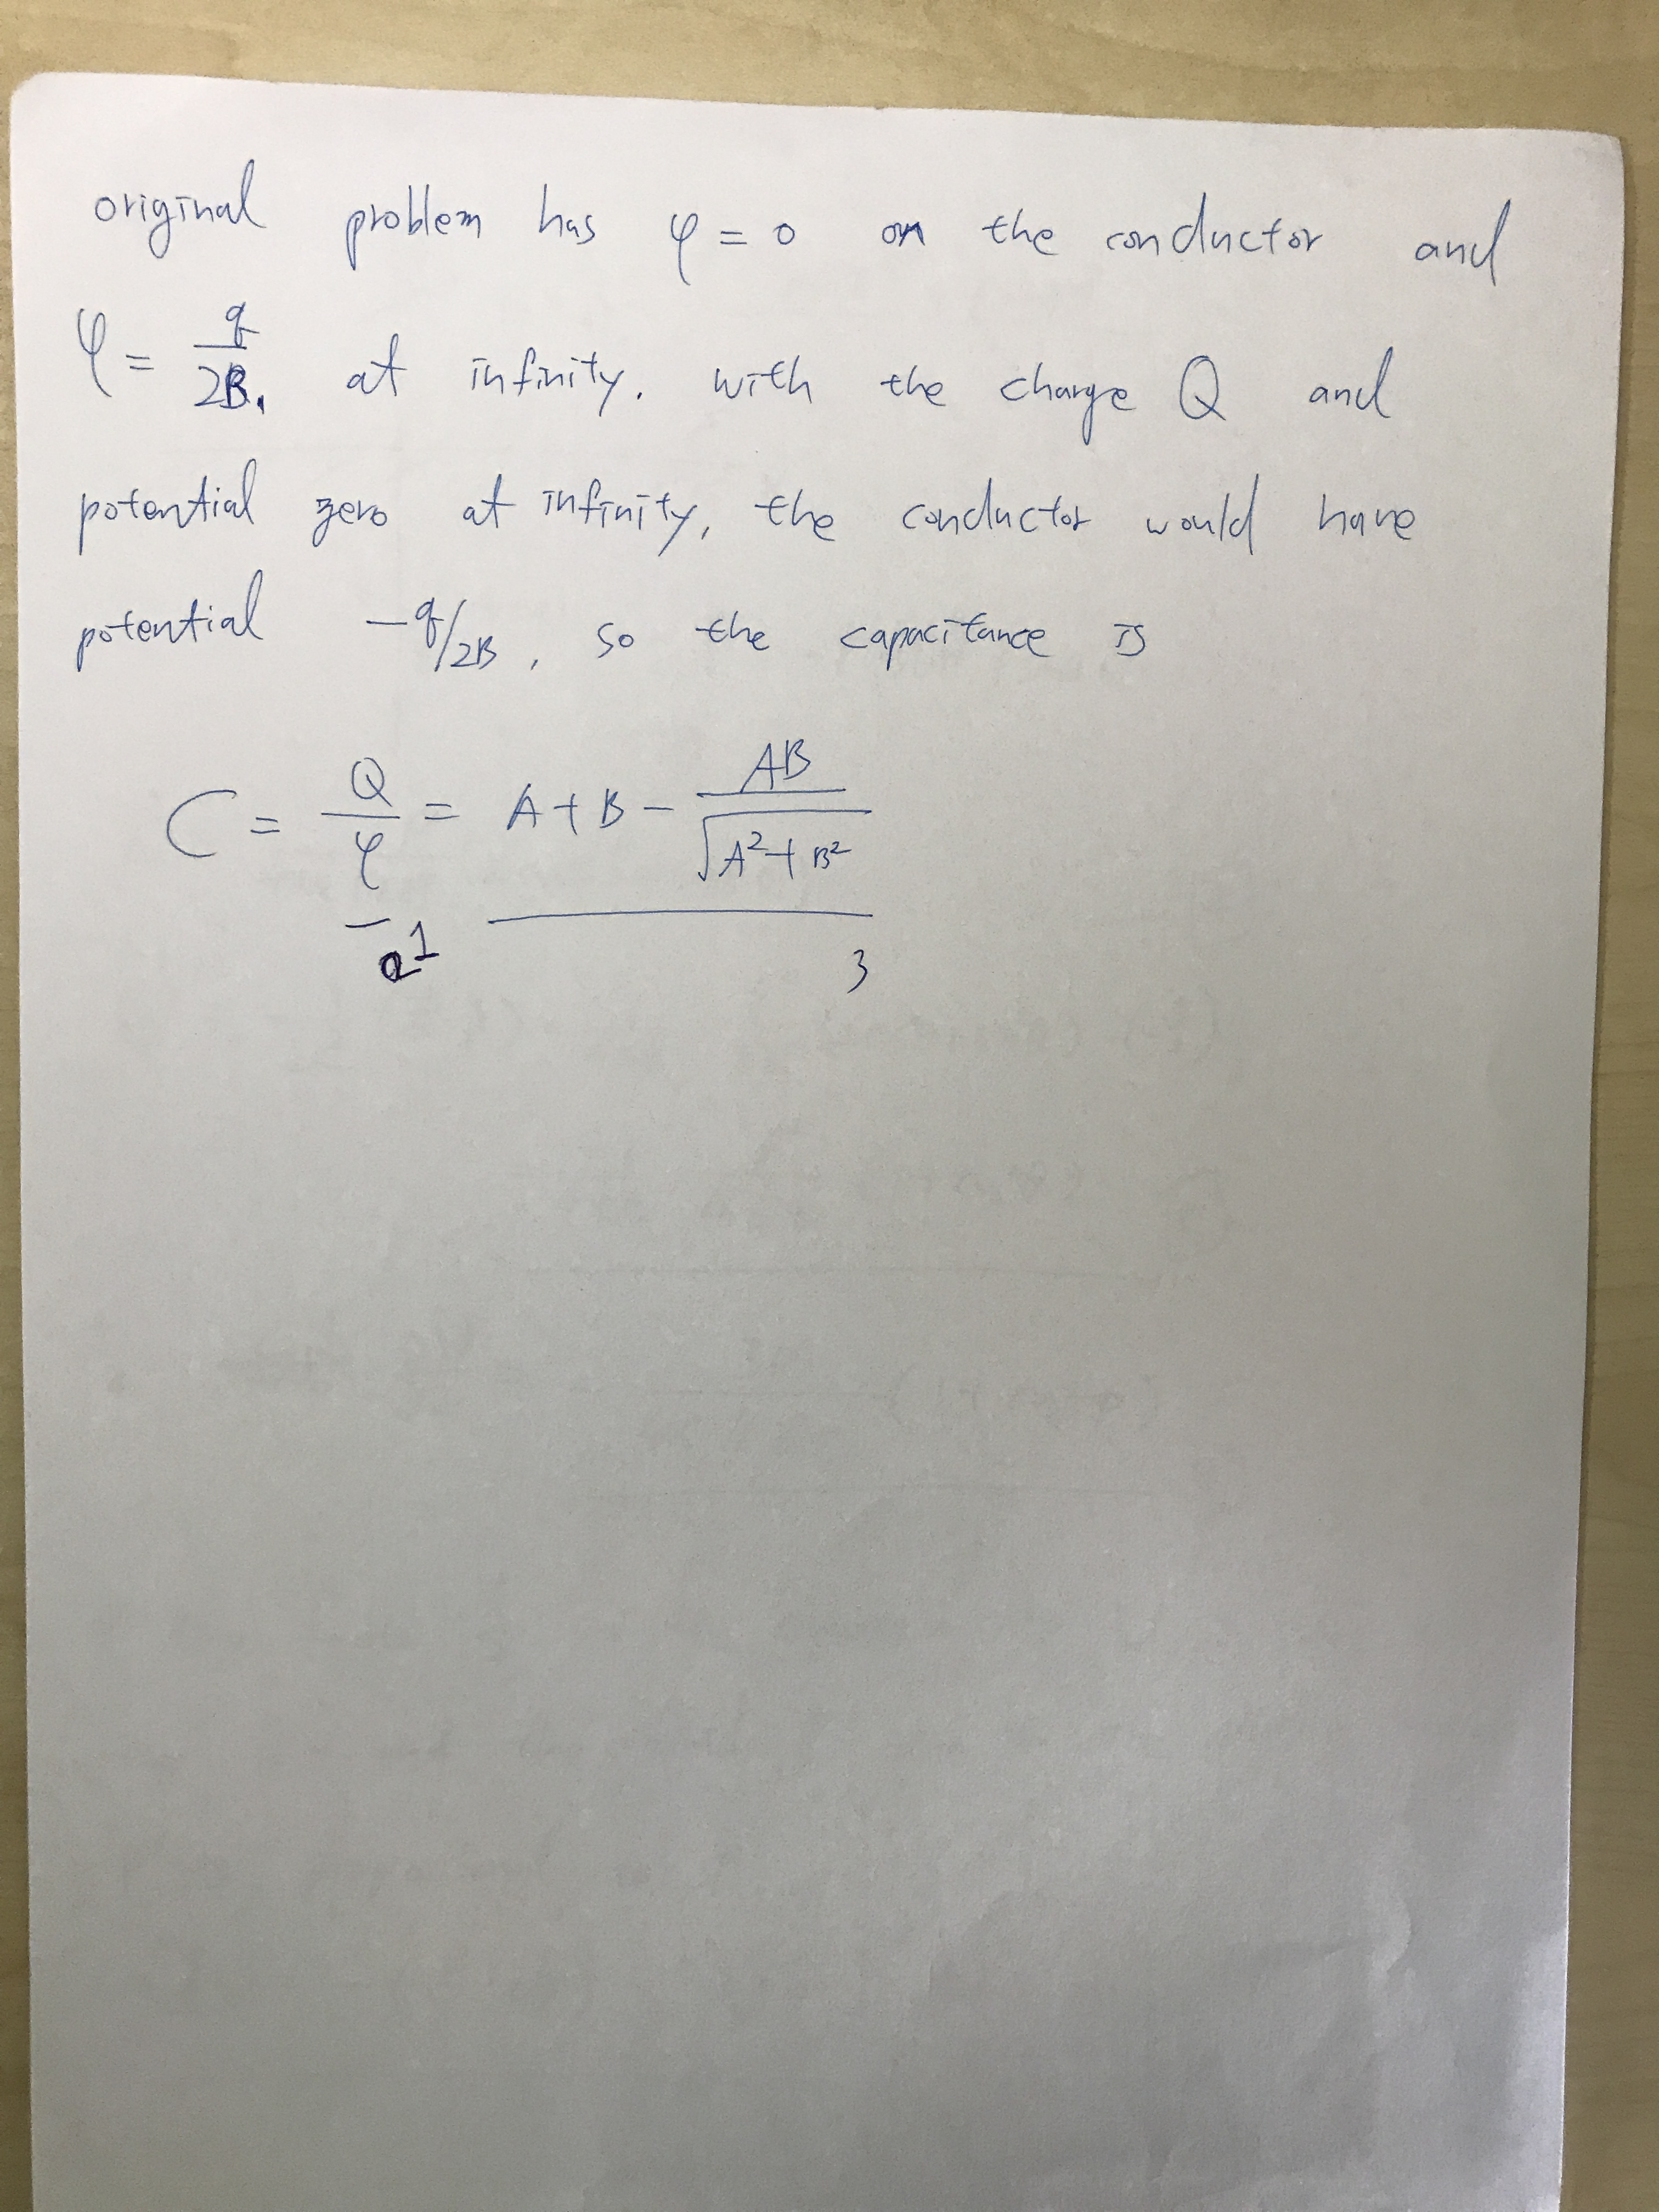 original problem has φ = 0 on the conductor and
φ = q/2B, at infinity. with the charge Q and
potential zero at infinity, the conductor would have
potential -q/2B, so the capacitance is
C = Q/φ = A + B - AB/√(A² + B²)
1 3